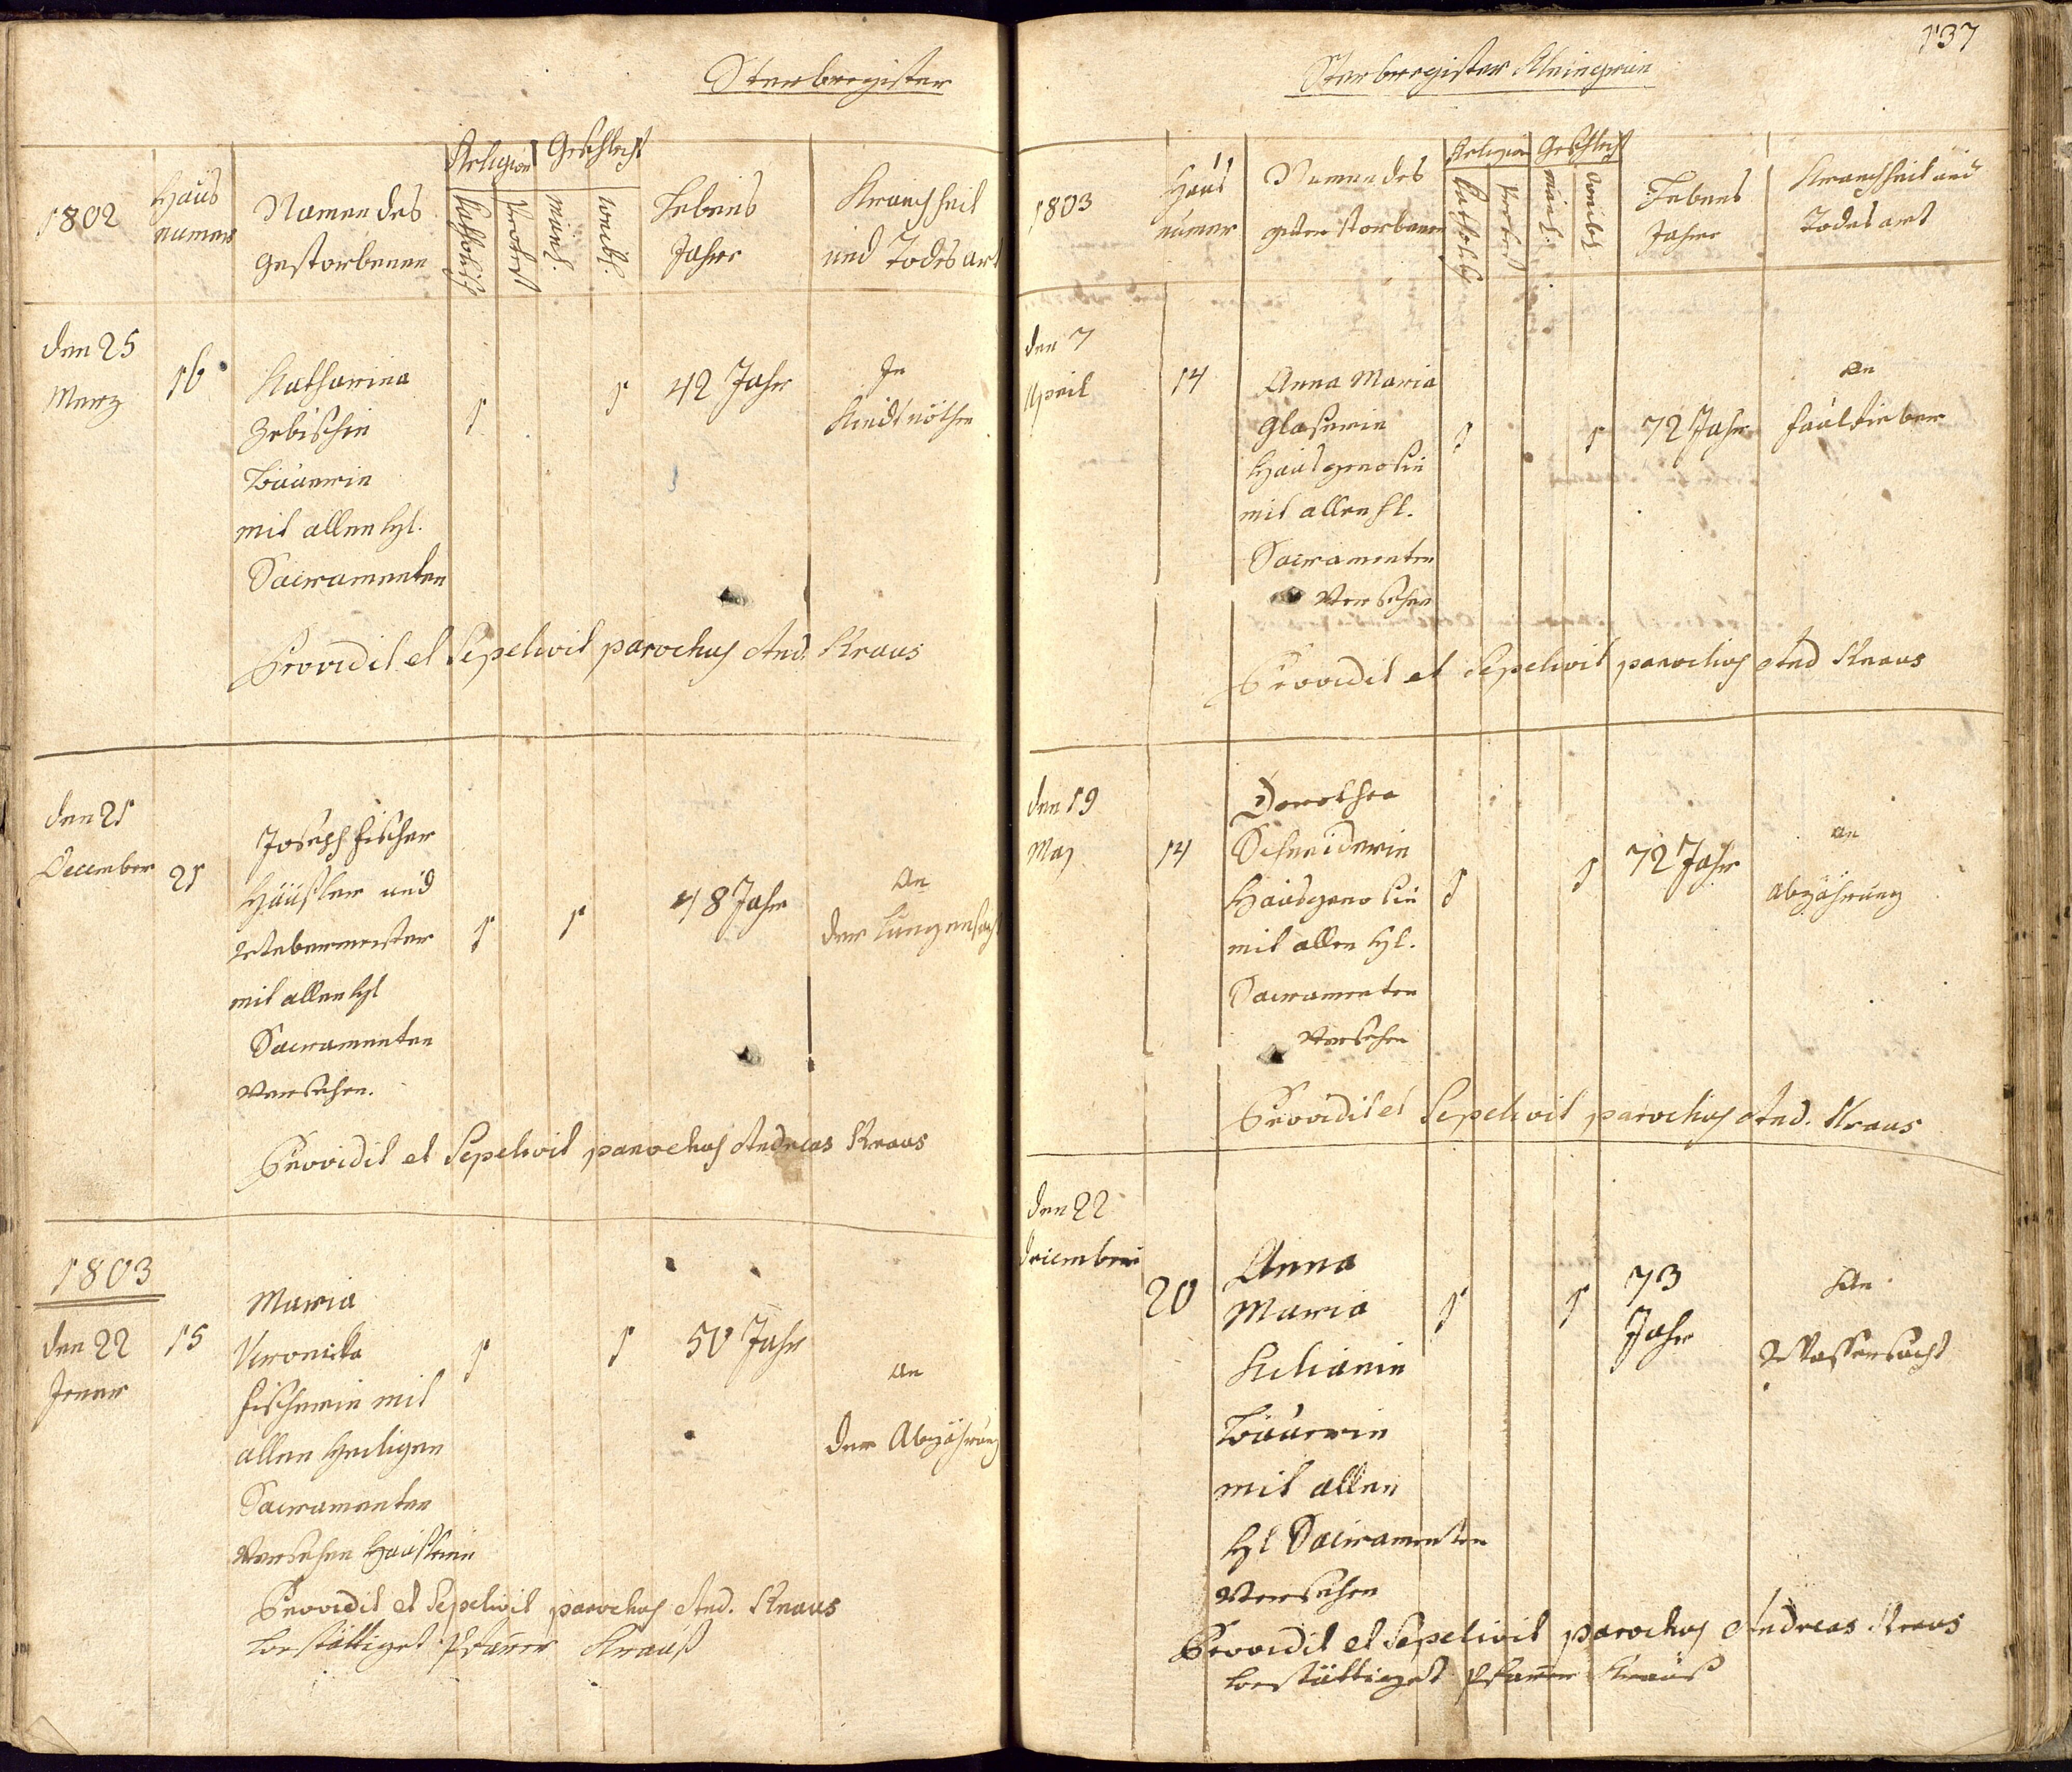 Sterbregister
1802
Haus
numer
Namen des
gestorbenen
Religion
Katholisch
Protest
Geschlecht
mänl.
weibl.
Lebens
Jahre
Krankheit
und Todesart
den 25
Merz
16
Katharina
Bäuerin
mit allen hl.
Sacramenten
1
1
42 Jahr
In
Kindsnöthen
Providit et Sepelivit parochus And. Kraus
den 21
December
21
Joseph Fischer
Häußler und
Webermeister
mit allen hl
Sacramenten
Versehen.
1
1
48 Jahr
An
der Lungensucht
Providit et Sepelivit parochus Andreas Kraus
1803
den 22
Jener
15
Maria
Veronicka
Fischerin mit
allen Heiligen
Sacramenten
Versehen Häuslerin
1
1
50 Jahr
an
der Abzährung
Providit et Sepelivit parochus And. Kraus
bestättiget Pfarrer Krauß
137
Sterbregister Kleingrün
1803
Haus
numer
Namen des
gestorbenen
Religion
Katholisch
Protest
Geschlecht
mänl.
weibl
Lebens
Jahre
Krankheit und
Todesart
den 7
April
14
Anna Maria
Glaserin
Hausgenosin
mit allen hl.
Sacramenten
Versehen
1
1
72 Jahr
An
Faulfieber
Providit et Sepelivit parochus And Kraus
den 19
May
14
Dorothea
Schneiderin
Hausgenosin
mit allen hl.
Sacramenten
Versehen
1
1
72 Jahr
an
Abzährung
Providit et Sepelivit parochus And. Kraus
den 22
december
20
Anna
Maria
Bäuerin
mit allen
hl Sacramenten
Versehen
1
1
73
Jahr
An
Wassersucht
Providit et Sepelivit parochus Andreas Kraus
bestättiget Pfarrer Krauß